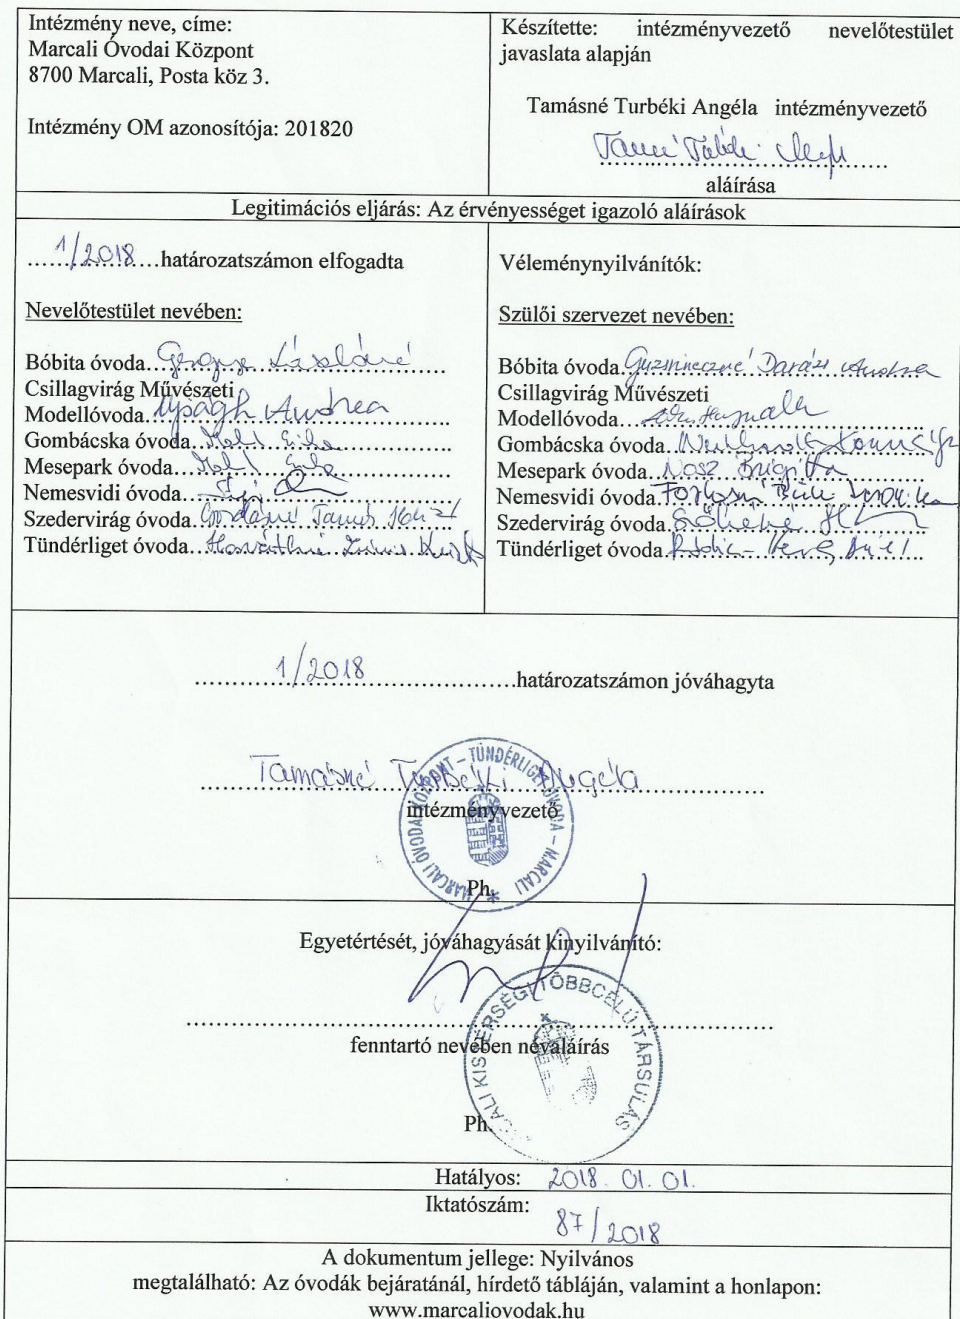 Intézmény neve, címe:
Marcali Óvodai Központ
8700 Marcali, Posta köz 3.
Intézmény OM azonosítója: 201820
Készítette: intézményvezető nevelőtestület
javaslata alapján
Tamásné Turbéki Angéla intézményvezető
aláírása
Legitimációs eljárás: Az érvényességet igazoló aláírások
1/2018 határozatszámon elfogadta
Nevelőtestület nevében:
Bóbita óvoda Lászlóné
Csillagvirág Művészeti
Modellóvoda Andrea
Gombácska óvoda
Mesepark óvoda
Nemesvidi óvoda
Szedervirág óvoda
Tündérliget óvoda Horváthné
Véleménynyilvánítók:
Szülői szervezet nevében:
Bóbita óvoda Andrea
Csillagvirág Művészeti
Modellóvoda
Gombácska óvoda
Mesepark óvoda Brigitta
Nemesvidi óvoda
Szedervirág óvoda
Tündérliget óvoda
1/2018 határozatszámon jóváhagyta
Tamásné Turbéki Angéla
intézményvezető
MARCALI ÓVODAI KÖZPONT – TÜNDÉRLIGET ÓVODA – MARCALI
Ph.
Egyetértését, jóváhagyását kinyilvánító:
fenntartó nevében névaláírás
KISTÉRSÉGI TÖBBCÉLÚ TÁRSULÁS
Ph.
Hatályos: 2018. 01. 01.
Iktatószám:
87/2018
A dokumentum jellege: Nyilvános
megtalálható: Az óvodák bejáratánál, hírdető tábláján, valamint a honlapon:
www.marcaliovodak.hu